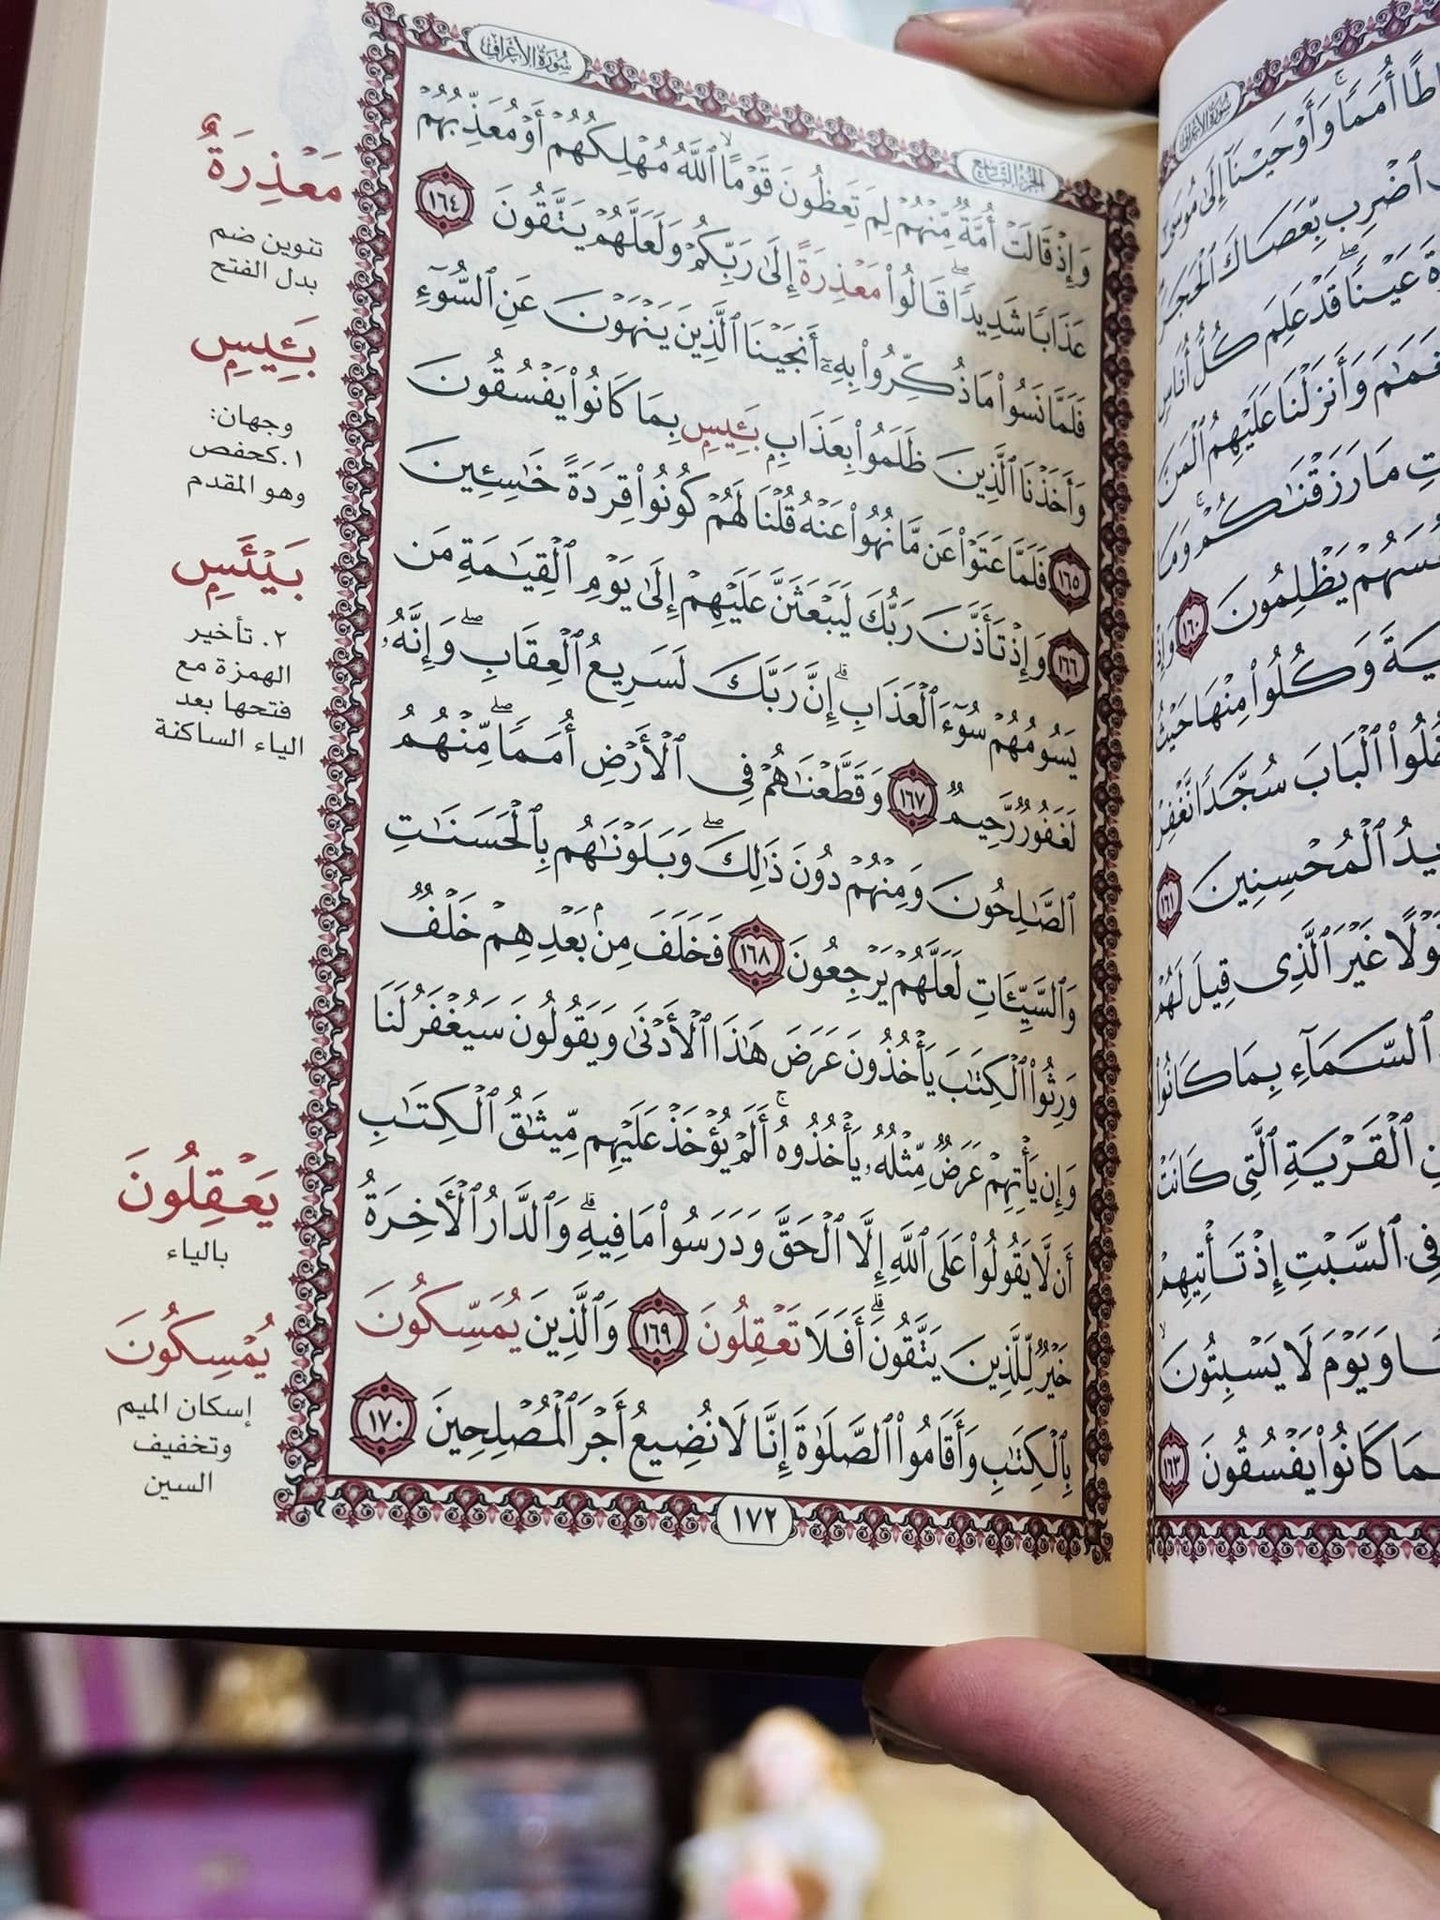 سُورَةُ الأَعْرَافِ
الجزء التاسع
وَإِذْ قَالَتْ أُمَّةٌ مِّنْهُمْ لِمَ تَعِظُونَ قَوْمًا ۙ ٱللَّهُ مُهْلِكُهُمْ أَوْ مُعَذِّبُهُمْ
عَذَابًا شَدِيدًا ۖ قَالُوا۟ مَعْذِرَةً إِلَىٰ رَبِّكُمْ وَلَعَلَّهُمْ يَتَّقُونَ ١٦٤
فَلَمَّا نَسُوا۟ مَا ذُكِّرُوا۟ بِهِۦٓ أَنجَيْنَا ٱلَّذِينَ يَنْهَوْنَ عَنِ ٱلسُّوٓءِ
وَأَخَذْنَا ٱلَّذِينَ ظَلَمُوا۟ بِعَذَابٍۭ بَـِٔيسٍۭ بِمَا كَانُوا۟ يَفْسُقُونَ
١٦٥ فَلَمَّا عَتَوْا۟ عَن مَّا نُهُوا۟ عَنْهُ قُلْنَا لَهُمْ كُونُوا۟ قِرَدَةً خَـٰسِـِٔينَ
١٦٦ وَإِذْ تَأَذَّنَ رَبُّكَ لَيَبْعَثَنَّ عَلَيْهِمْ إِلَىٰ يَوْمِ ٱلْقِيَـٰمَةِ مَن
يَسُومُهُمْ سُوٓءَ ٱلْعَذَابِ ۗ إِنَّ رَبَّكَ لَسَرِيعُ ٱلْعِقَابِ ۖ وَإِنَّهُۥ
لَغَفُورٌ رَّحِيمٌ ١٦٧ وَقَطَّعْنَـٰهُمْ فِى ٱلْأَرْضِ أُمَمًا ۖ مِّنْهُمُ
ٱلصَّـٰلِحُونَ وَمِنْهُمْ دُونَ ذَٰلِكَ ۖ وَبَلَوْنَـٰهُم بِٱلْحَسَنَـٰتِ
وَٱلسَّيِّـَٔاتِ لَعَلَّهُمْ يَرْجِعُونَ ١٦٨ فَخَلَفَ مِنۢ بَعْدِهِمْ خَلْفٌ
وَرِثُوا۟ ٱلْكِتَـٰبَ يَأْخُذُونَ عَرَضَ هَـٰذَا ٱلْأَدْنَىٰ وَيَقُولُونَ سَيُغْفَرُ لَنَا
وَإِن يَأْتِهِمْ عَرَضٌ مِّثْلُهُۥ يَأْخُذُوهُ ۚ أَلَمْ يُؤْخَذْ عَلَيْهِم مِّيثَـٰقُ ٱلْكِتَـٰبِ
أَن لَّا يَقُولُوا۟ عَلَى ٱللَّهِ إِلَّا ٱلْحَقَّ وَدَرَسُوا۟ مَا فِيهِ ۗ وَٱلدَّارُ ٱلْـَٔاخِرَةُ
خَيْرٌ لِّلَّذِينَ يَتَّقُونَ ۗ أَفَلَا تَعْقِلُونَ ١٦٩ وَٱلَّذِينَ يُمَسِّكُونَ
بِٱلْكِتَـٰبِ وَأَقَامُوا۟ ٱلصَّلَوٰةَ إِنَّا لَا نُضِيعُ أَجْرَ ٱلْمُصْلِحِينَ ١٧٠
١٧٢
مَعْذِرَةٌ
تنوين ضم
بدل الفتح
بَـِٔيسٍۭ
وجهان:
١. كحفص
وهو المقدم
بَيْـَٔسٍۭ
٢. تأخير
الهمزة مع
فتحها بعد
الياء الساكنة
يَعْقِلُونَ
بالياء
يُمْسِكُونَ
إسكان الميم
وتخفيف
السين
سُورَةُ الأَعْرَافِ
أُمَمًا ۚ وَأَوْحَيْنَآ إِلَىٰ مُوسَىٰٓ
ٱضْرِب بِّعَصَاكَ ٱلْحَجَرَ
عَيْنًا ۖ قَدْ عَلِمَ كُلُّ أُنَاسٍ
وَأَنزَلْنَا عَلَيْهِمُ ٱلْمَنَّ
مَا رَزَقْنَـٰكُمْ ۚ وَمَا
يَظْلِمُونَ ١٦٠ وَإِذْ
وَكُلُوا۟ مِنْهَا حَيْثُ
ٱلْبَابَ سُجَّدًا نَّغْفِرْ
ٱلْمُحْسِنِينَ ١٦١
غَيْرَ ٱلَّذِى قِيلَ لَهُمْ
ٱلسَّمَآءِ بِمَا كَانُوا۟
ٱلْقَرْيَةِ ٱلَّتِى كَانَتْ
فِى ٱلسَّبْتِ إِذْ تَأْتِيهِمْ
وَيَوْمَ لَا يَسْبِتُونَ ۙ
كَانُوا۟ يَفْسُقُونَ ١٦٣